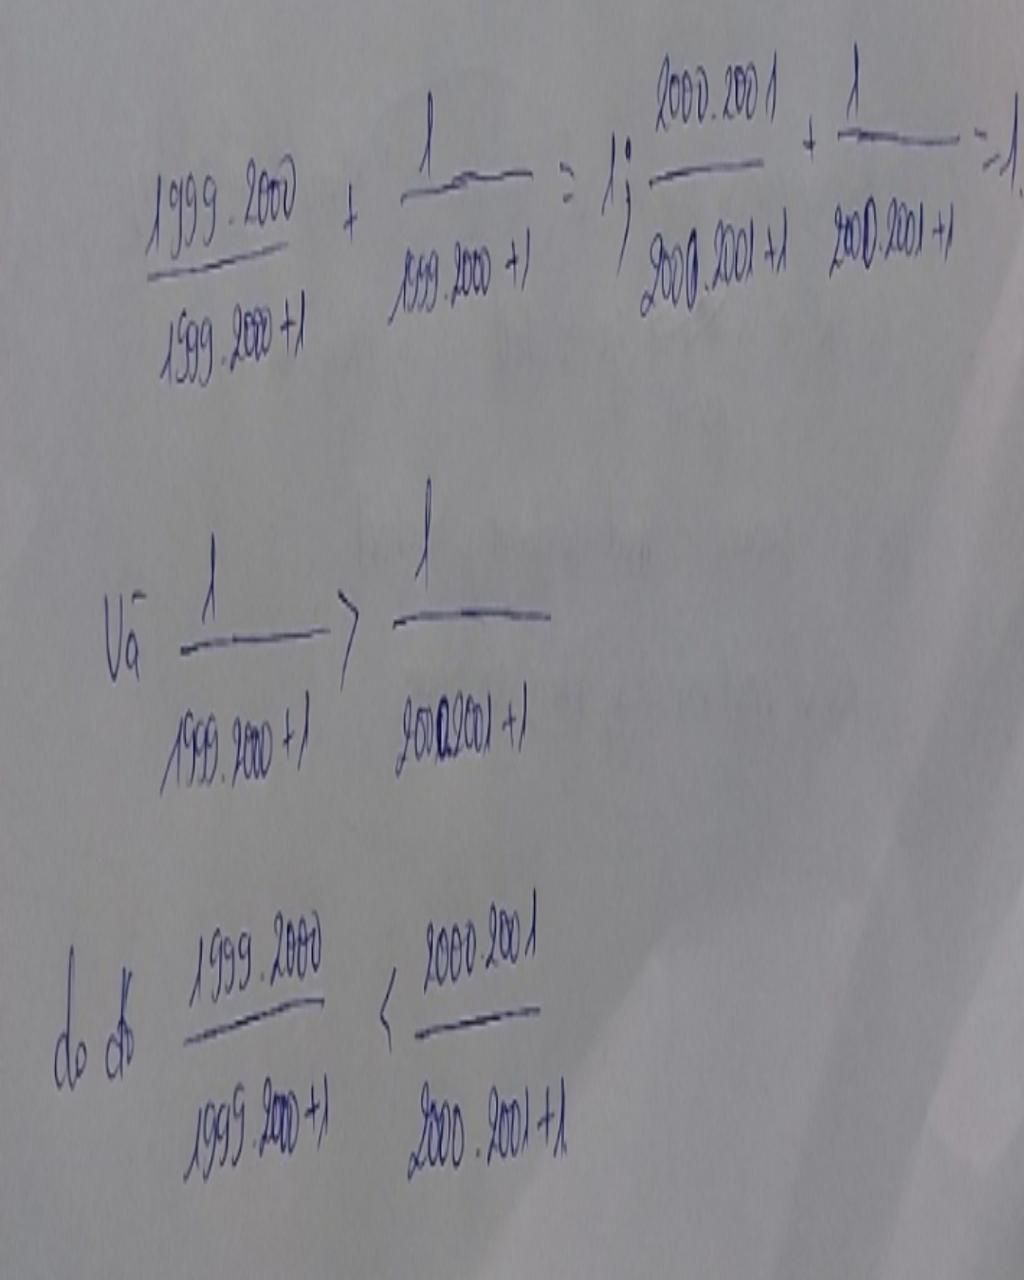 1999.2000/1999.2000+1 + 1/1999.2000+1 = 1; 2000.2001/2000.2001+1 + 1/2000.2001+1 = 1.
Và 1/1999.2000+1 > 1/2000.2001+1
do đó 1999.2000/1999.2000+1 < 2000.2001/2000.2001+1